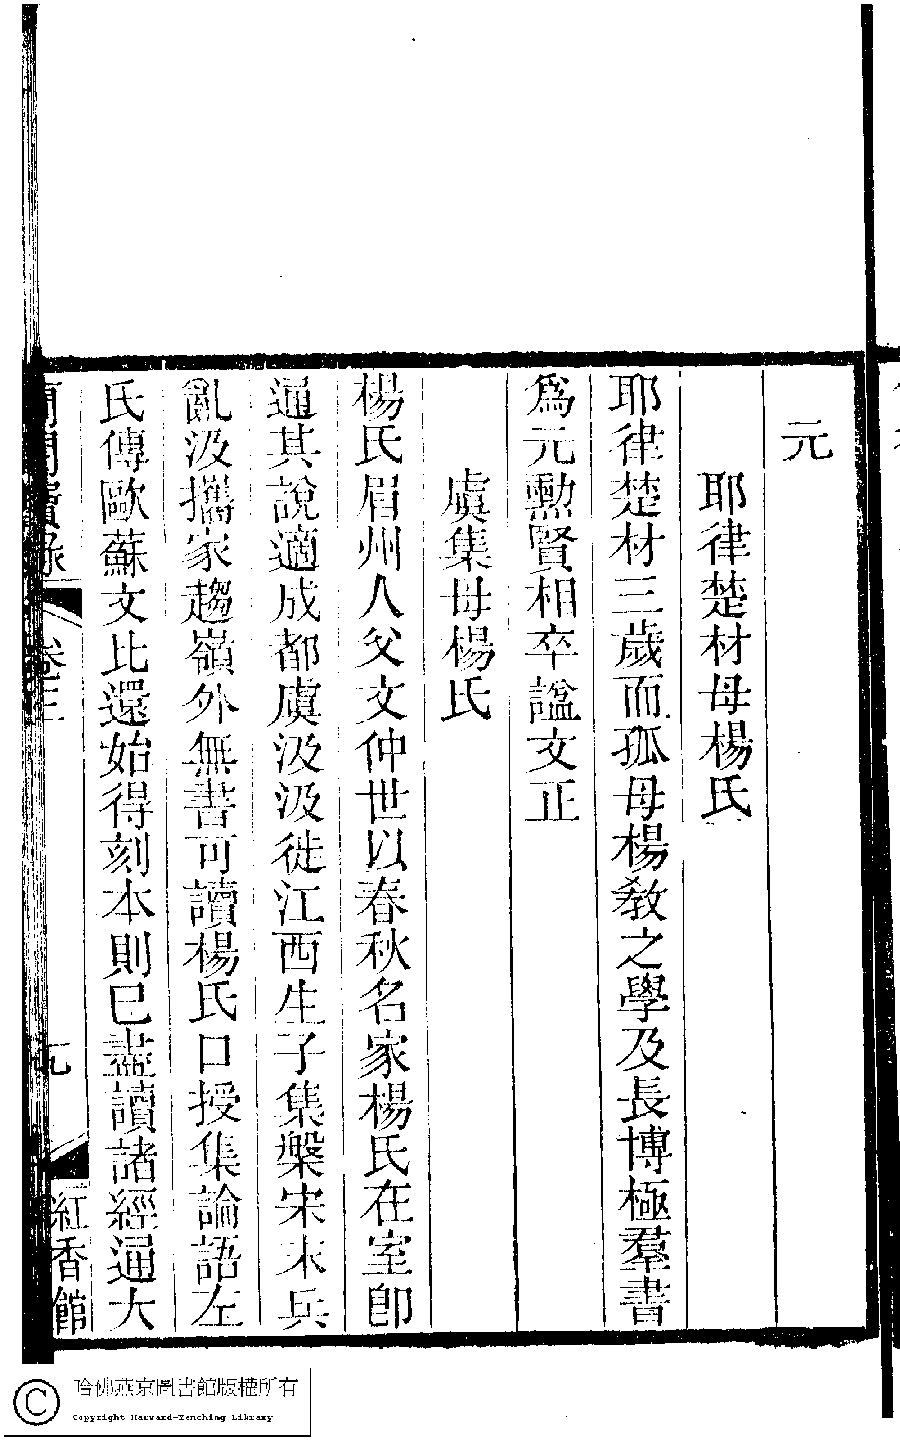 元
耶律楚材母楊氏
耶律楚材三歲而孤母楊教之學及長博極羣書
爲元勲賢相卒諡文正
虞集母楊氏
楊氏眉州人父文仲世以春秋名家楊氏在室卽
通其說適成都虞汲汲徙江西生子集槃宋末兵
亂汲攜家趨嶺外無書可讀楊氏口授集論語左
氏傳歐蘇文比還始得刻本則已盡讀諸經通大
卷三
九
紅香館
哈佛燕京圖書館版權所有
Copyright Harvard-Yenching Library